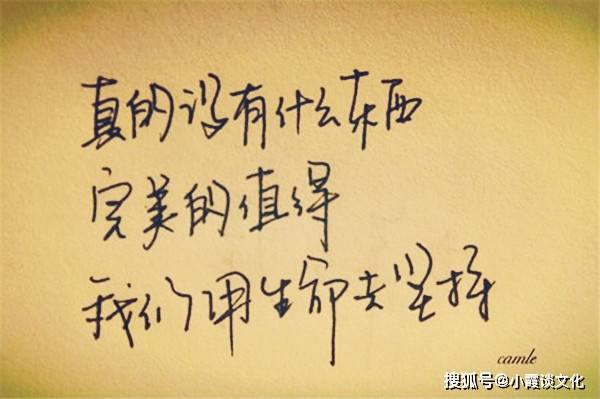 真的没有什么东西
完美的值得
我们用生命去坚持
camle
搜狐号@小霞谈文化